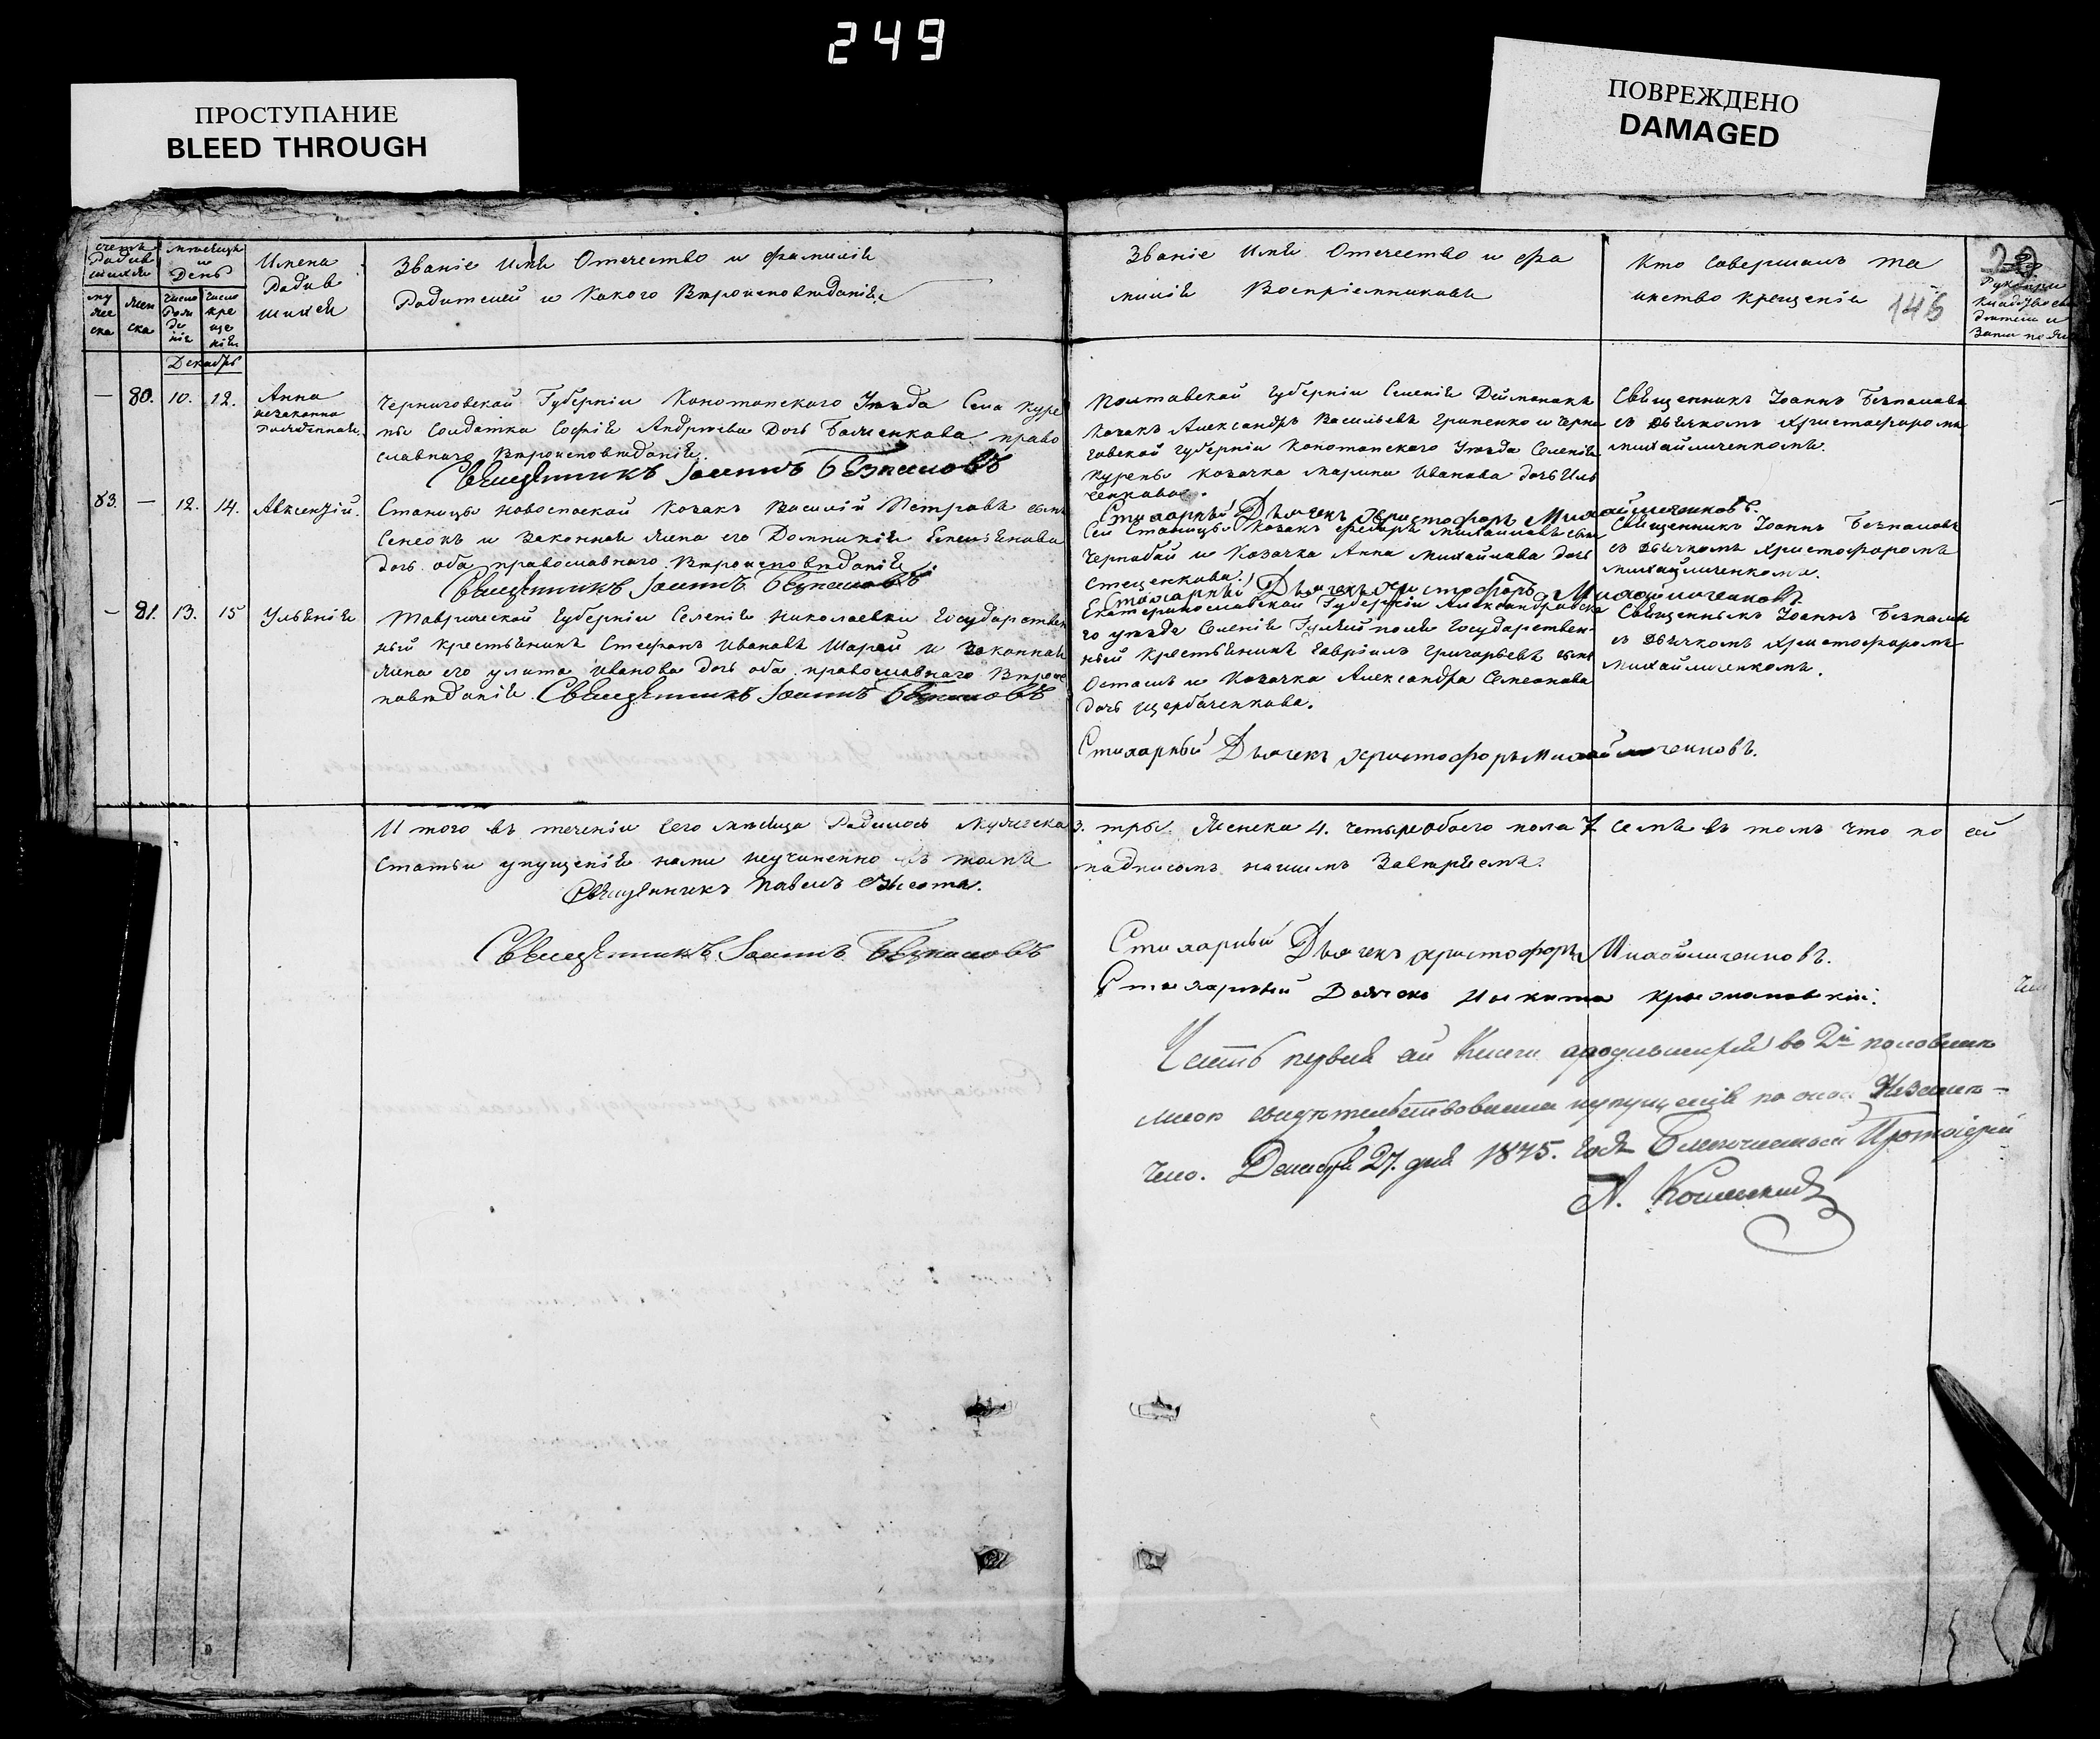 249
ПРОСТУПАНИЕ
BLEED THROUGH
ПОВРЕЖДЕНО
DAMAGED
счетъ родив шихся
мѣсяцъ и День
Имена родив шихся
му жес ска
жен ска
число рож де нія
число кре ще нія
Званіе Имя Отечество и фамилія
Родителей и Какого Вѣроисповѣданія
Званіе Имя Отечество и фа
милія Воспріемниковъ
Кто Совершалъ та
инство крещенія
146
Декабрь
— 80. 10. 12. Анна
незаконно
рожденная.
Черниговской Губерніи Конотопского Уѣзда Села Куре
ны Солдатка Софія Андрѣева Дочь право
славного Вѣроисповѣданія.
Священникъ Іоаннъ Безпаловъ
Полтавской Губерніи Селенія
Козакъ Александръ Васильевъ Грипенко и Черни
говской Губерніи Конотопского Уѣзда Селенія
Курены Козачка Марина Иванова дочь Иль
ченкова.
Стихарный Дьячекъ Христофоръ Михайличенковъ.
Священникъ Іоаннъ Безпаловъ
съ дьячкомъ Христофоромъ
Михайличенкомъ.
83. — 12. 14. Авксентій.
Станицы Новоспаской Козакъ Василій Петровъ сынъ
Сенсокъ и законная жена его Домникія Емельянова
дочь оба православного Вѣроисповѣданія.
Священникъ Іоаннъ Безпаловъ.
Сей Станицы Козакъ Федоръ Михайловъ сынъ
Чернобай и Козачка Анна Михайлова дочь
Стеценкова.
Стихарный Дьячекъ Христофоръ Михайличенковъ.
Священникъ Іоаннъ Безпаловъ
съ дьячкомъ Христофоромъ
Михайличенкомъ.
— 81. 13. 15 Ульянія
Таврической Губерніи Селенія Николаевки Государствен
ный крестьянинъ Стефанъ Ивановъ Шарай и законная
жена его Улита Иванова дочь оба православного Вѣроис
повѣданія. Священникъ Іоаннъ Безпаловъ
Екатеринославской Губерніи Александровска
го уѣзда Селенія Гуляйполя Государствен
ный крестьянинъ Гавріилъ Григорьевъ сынъ
Осташъ и Козачка Александра Семеонова
дочь Щербаченкова.
Стихарный Дьячекъ Христофоръ Михайличенковъ.
Священникъ Іоаннъ Безпаловъ
съ дьячкомъ Христофоромъ
Михайличенкомъ.
И того въ теченіи сего мѣсяца Родилось мужеска 3. три. Женска 4. четыре обоего пола 7 семь въ томъ что по сей
Статьи упущенія нами неучиненно въ томъ подписомъ нашимъ Завѣряемъ.
Священникъ Павелъ
Священникъ Іоаннъ Безпаловъ
Стихарный Дьячекъ Христофоръ Михайличенковъ.
Стихарный Дьячекъ Никита Крыжановскій.
Часть первая сей Книги о родившихся во 2й половинѣ
мною свидѣтельствована и упущенія по оной Незамѣ-
чено. Декабря 27. дня 1845. Года Благочинный Протоіерей